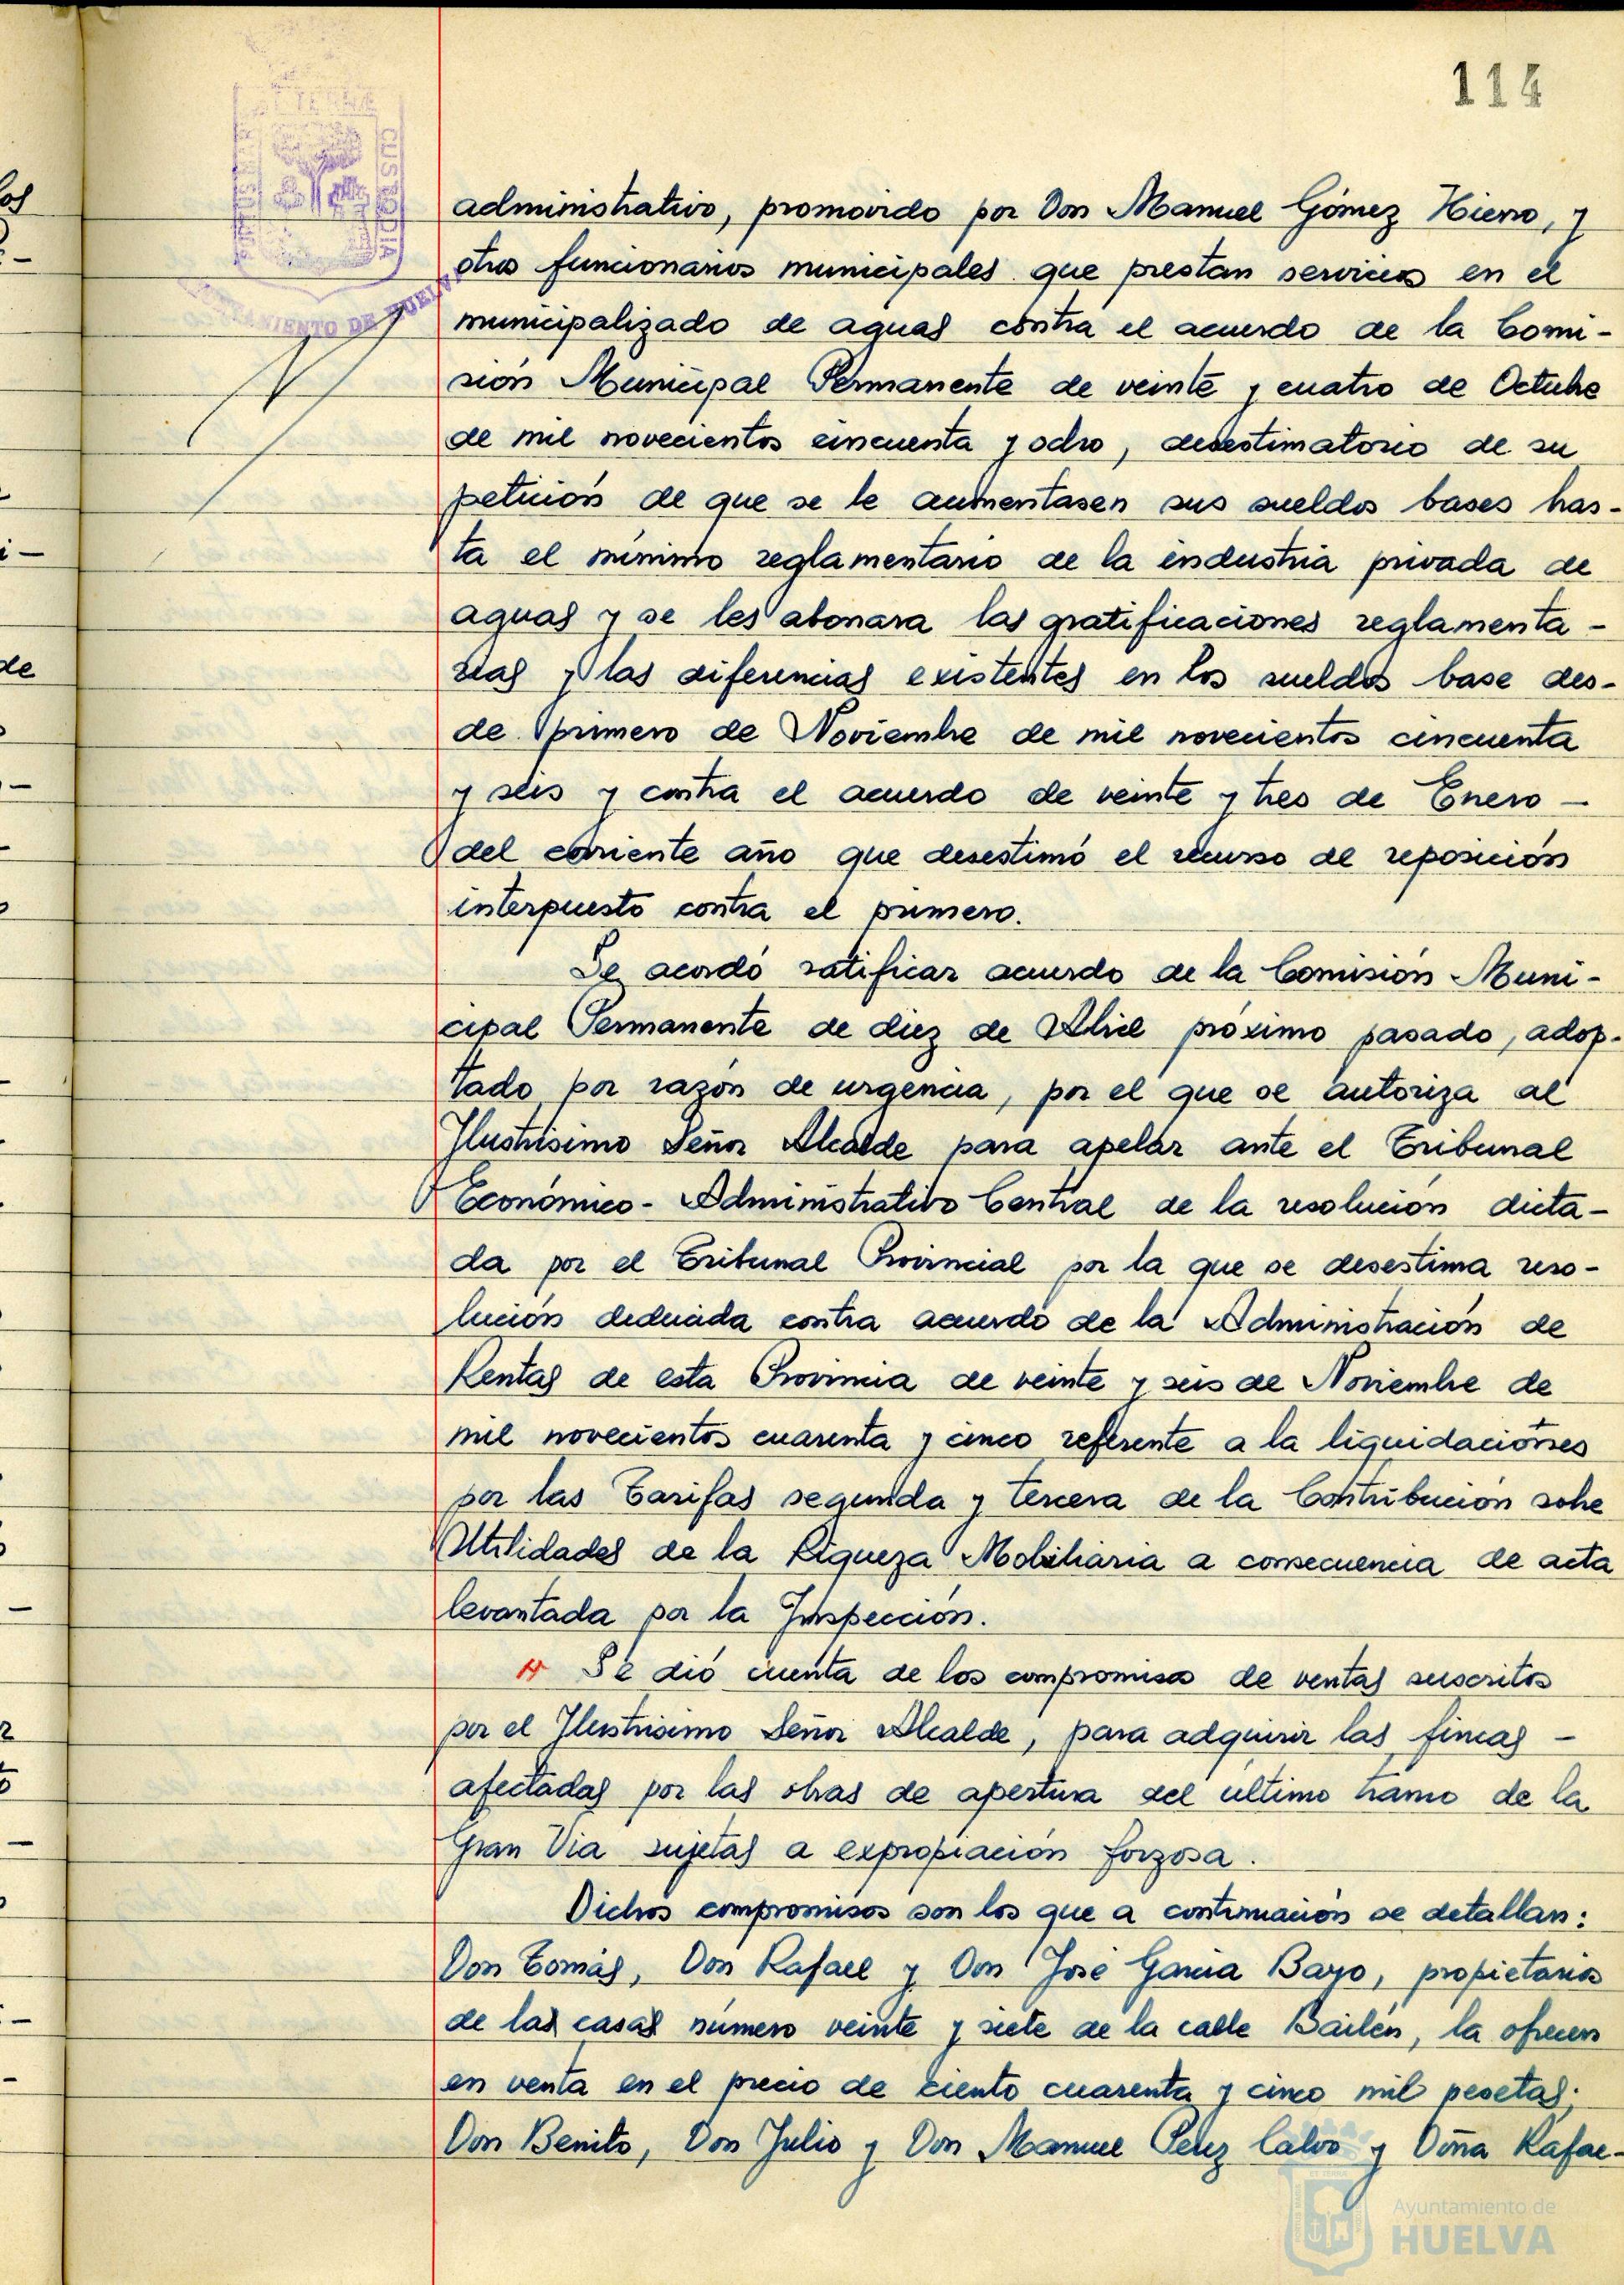 114
administrativo, promovido por Don Manuel Gómez Hierro, y
otros funcionarios municipales que prestan servicios en el
municipalizado de aguas contra el acuerdo de la Comi-
sión Municipal Permanente de veinte y cuatro de Octubre
de mil novecientos cincuenta y ocho, desestimatorio de su
petición de que se le aumentasen sus sueldos bases has-
ta el mínimo reglamentario de la industria privada de
aguas y se les abonara las gratificaciones reglamenta-
rias y las diferencias existentes en los sueldos base des-
de primero de Noviembre de mil novecientos cincuenta
y seis y contra el acuerdo de veinte y tres de Enero -
del corriente año que desestimó el recurso de reposición
interpuesto contra el primero.
Se acordó ratificar acuerdo de la Comisión Muni-
cipal Permanente de diez de Abril próximo pasado, adop-
tado por razón de urgencia, por el que se autoriza al
Ilustrísimo Señor Alcalde para apelar ante el Tribunal
Económico-Administrativo Central de la resolución dicta-
da por el Tribunal Provincial por la que se desestima reso-
lución deducida contra acuerdo de la Administración de
Rentas de esta Provincia de veinte y seis de Noviembre de
mil novecientos cuarenta y cinco referente a la liquidaciones
por las Tarifas segunda y tercera de la Contribución sobre
Utilidades de la Riqueza Mobiliaria a consecuencia de acta
levantada por la Inspección.
Se dió cuenta de los compromisos de ventas suscritos
por el Ilustrísimo Señor Alcalde, para adquirir las fincas -
afectadas por las obras de apertura del último tramo de la
Gran Via sujetas a expropiación forzosa.
Dichos compromisos son los que a continuación se detallan:
Don Tomás, Don Rafael y Don José García Bayo, propietarios
de las casas número veinte y siete de la calle Bailén, la ofrecen
en venta en el precio de ciento cuarenta y cinco mil pesetas;
Don Benito, Don Julio y Don Manuel Pérez Calvo y Doña Rafae-
CUSTODIA
AYUNTAMIENTO DE HUELVA
Ayuntamiento de
HUELVA